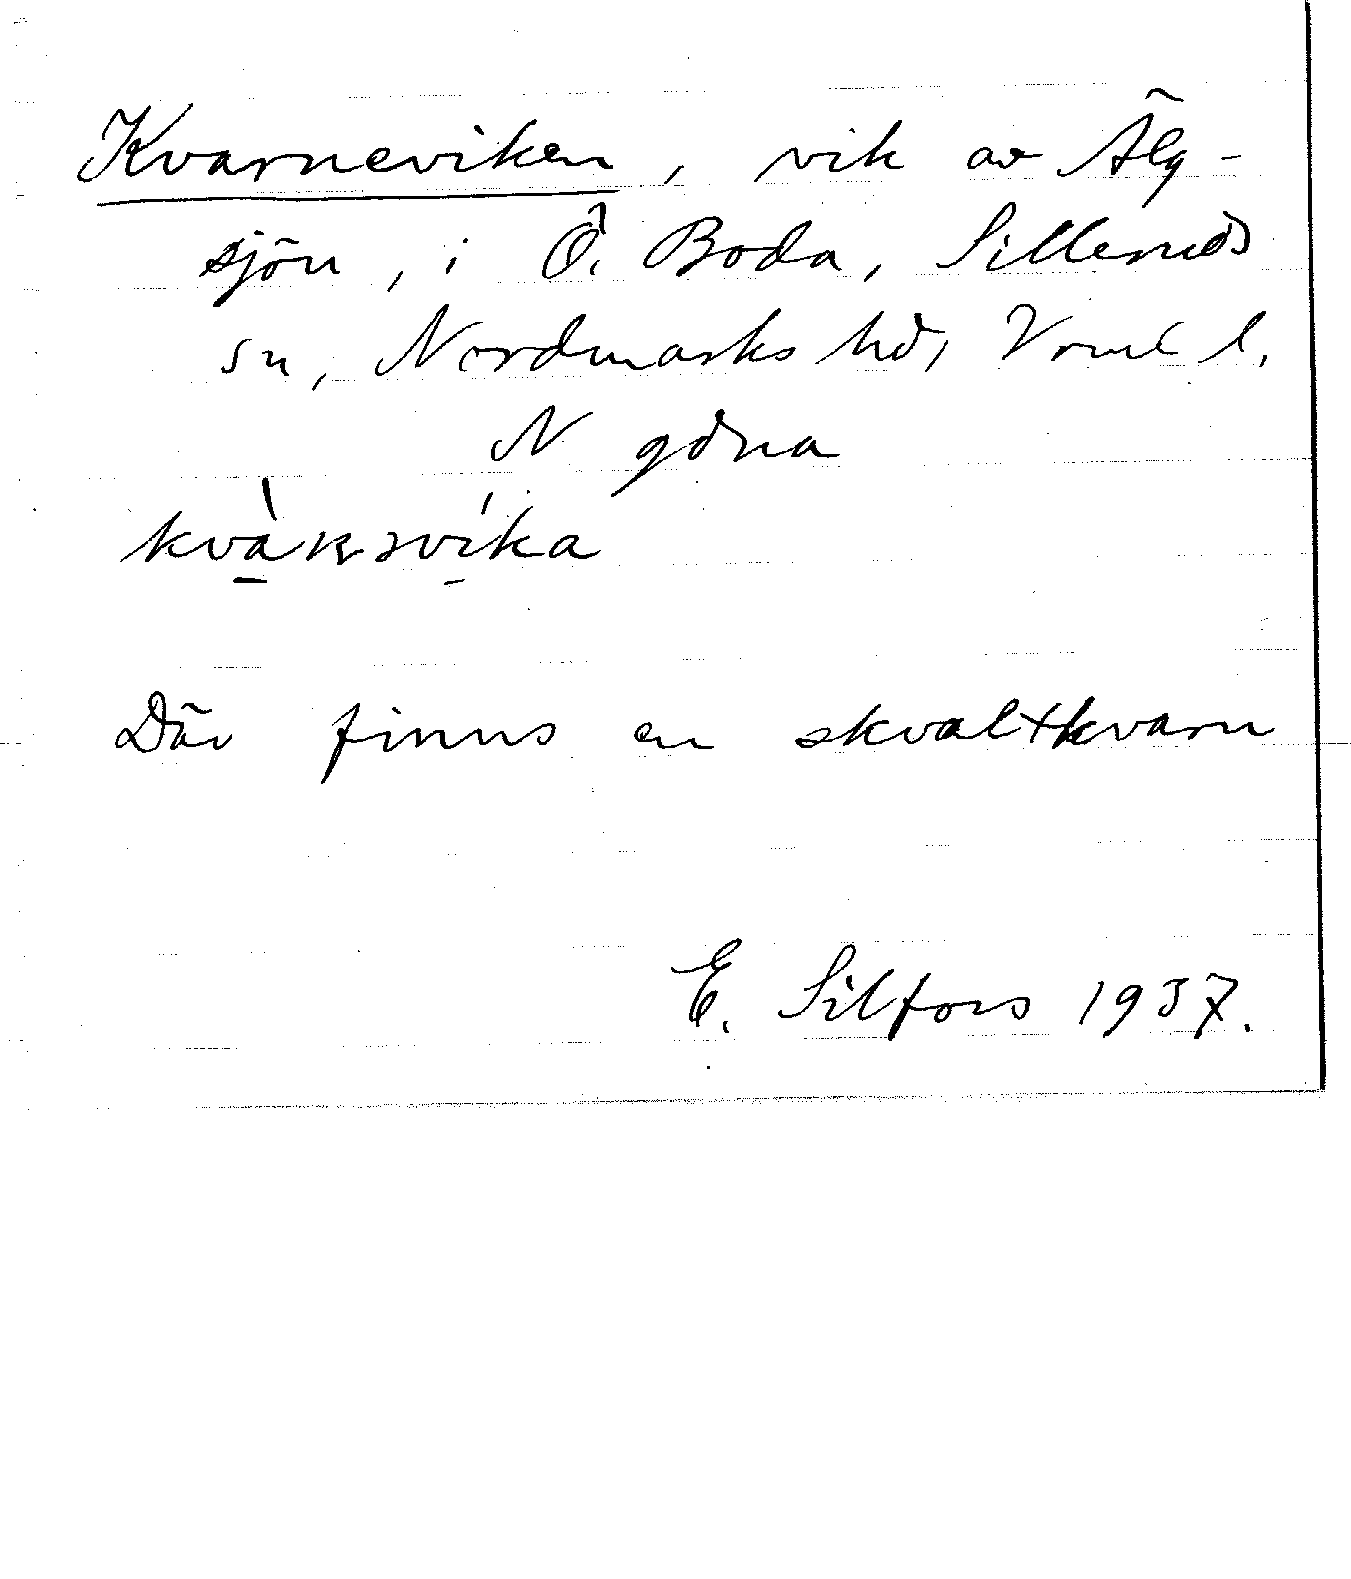 Kvarneviken, vik av Älg-
sjön, i Ö. Boda, Silleruds
sn, Nordmarks hd, Vrml l.
N gdna
Där finns en skvaltkvarn
E. Silfors 1937.